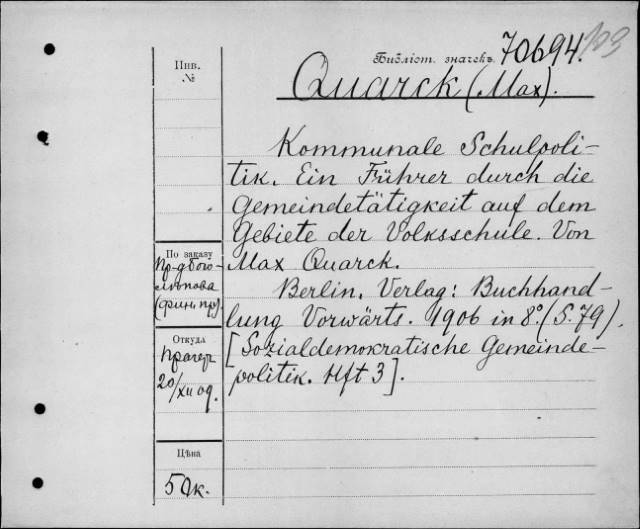 Библіот. значекъ 70694. 103
Инв.
№
Quarck (Max).
Kommunale Schulpoli-
tik. Ein Führer durch die
Gemeindetätigkeit auf dem
Gebiete der Volksschule. Von
Max Quarck.
Berlin. Verlag: Buchhand-
lung Vorwärts. 1906 in 8° (S. 79).
[Sozialdemokratische Gemeinde-
politik. Hft 3].
По заказу
Пр-д. Бого-
лѣпова
(фин. пр).
Откуда
Прагер
20/XII 09.
Цѣна
50 к.